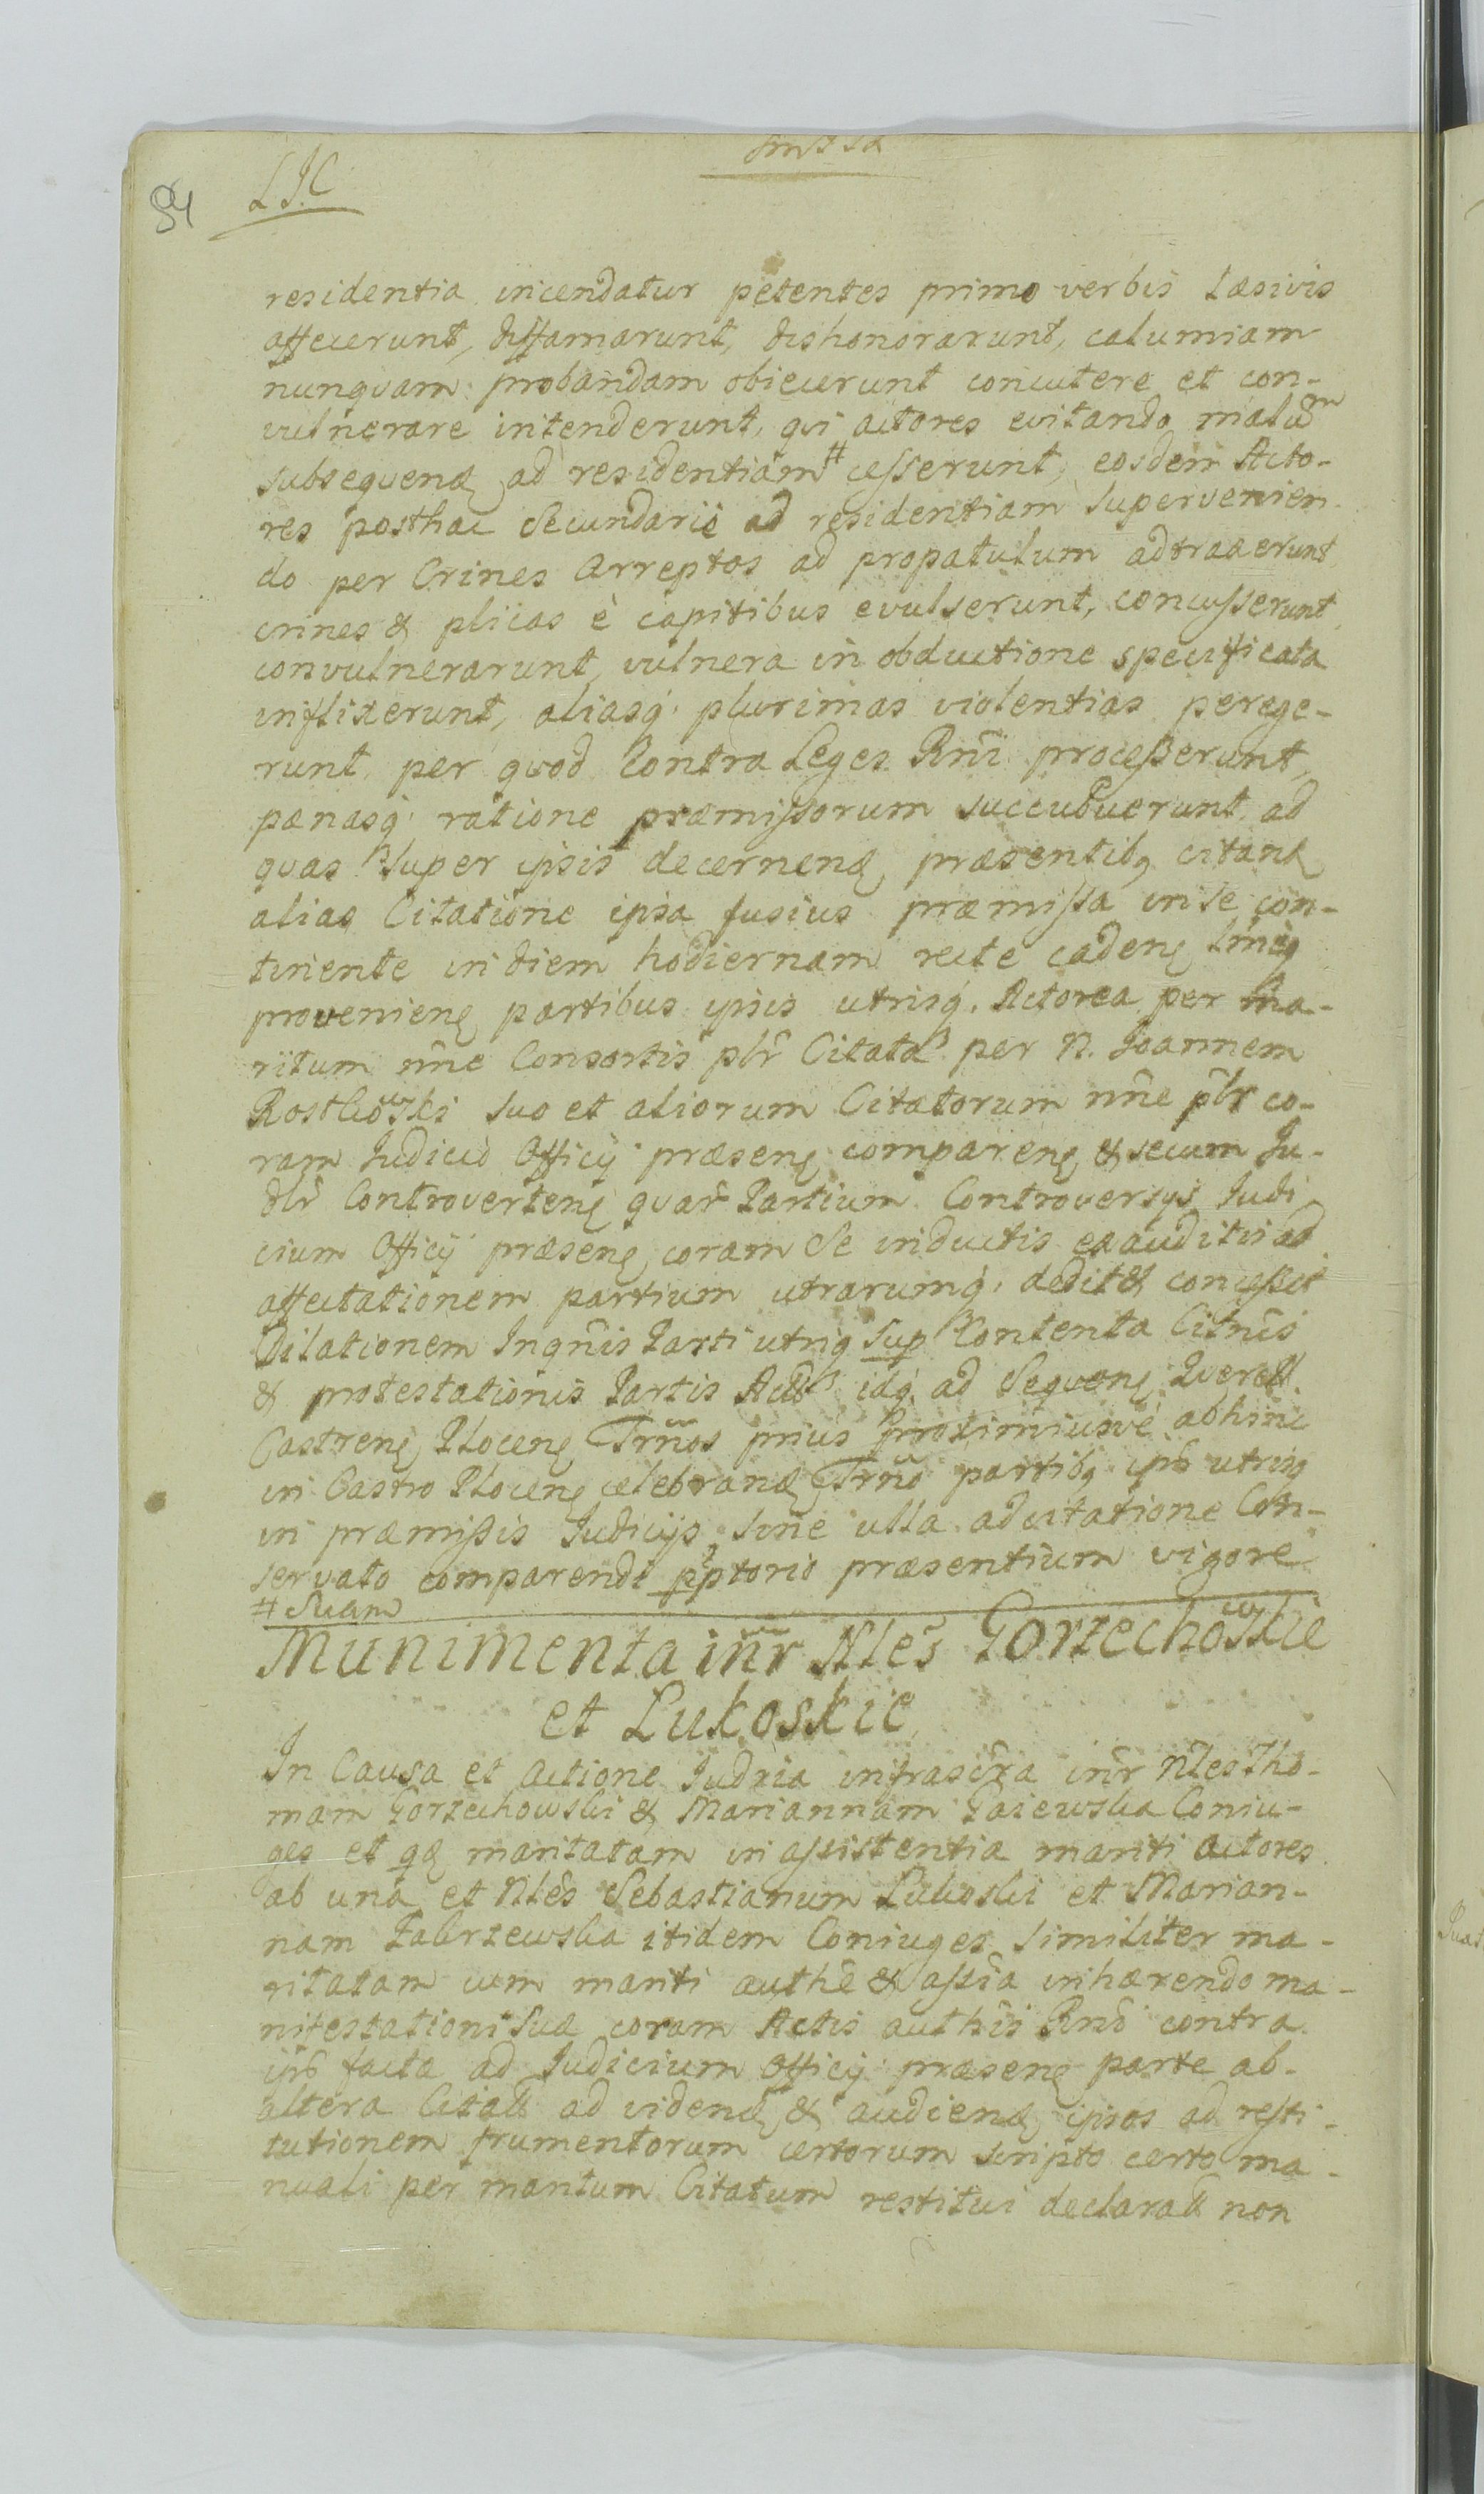 94
LJC
residentia incendatur petentes primo verbis Læsivis
affecerunt, diffamarunt, dishonorarunt, calumiam
nunquam probandam obiecerunt concutere et con-
vulnerare intenderunt, qvi actores evitando malum
subseqvenđ ad residentiam # cesserunt, eosdem Acto-
res posthac Secundarie ad residentiam Supervenien-
do per Crines Arreptos ad propatulum adtraxerunt
crines & plicas è capitibus evulserunt, concusserunt,
convulnerarunt, vulnera in obductione specificata
inflixerunt, aliasq. plurimas violentias perege-
runt, per qvod Contra Leges Rni processerunt,
pænasq. ratione præmissorum succubuerunt, ad
qvas Super ipsis decernenđ præsentibꝫ citanđ
alias Citatione ipsa fusius præmissa in se con-
tinente in diem hodiernam recte cadenę
provenienę partibus ipsis utrisq. Actorea per Ma-
ritum nñe Consortis plr̃ Citata per N. Joannem
Rostkowski suo et aliorum Citatorum nñe plr̃ co-
ram Judicio Officÿ præsenę comparenę & secum Ju-
dlr̃ Controvertenę qvar̃ Partium Controversÿs Judi
cium Officÿ præsenę coram Se inductis exauditis ad
affectationem partium utrarumq. dedit & concessit
Dilationem Inqñis Parti utriq Sup Contenta Citñis
& protestationis Partis idq. ad Seqvenę Qverel̃
Castrenę Plocenę Trm̃nos prius Proximiusve abhinc
in Castro Plocenę celebranđ Trm̃no partibꝫ ips utrisq
in præmissis Judicÿs sine ulla adcitatione Con-
servato comparendi pptorio præsentium vigore
# Suam
Munimenta inr̃ Nles Gorzechowskie
et Lukoskie
In Causa et Actione Judria infrascr̃a inr̃ Nles Tho-
mam Gorzechowski & Mariannam Gaiewska Coniu-
ges et qđ maritatam in assistentia mariti actores
ab una et Nlẽs Sebastianum Lukoski et Marian-
nam Zakrzewska itidem Coniuges similiter ma-
ritatam cum mariti authẽ & assia inhærendo ma-
nifestationi Suæ coram Actis authis Rni contra
ips facta ad Judicium Officÿ præsenę parte ab-
altera Citatt ad videnđ & audienđ ipsos ad resti-
tutionem frumentorum certorum scripto certo ma-
nuali per maritum Citatum restitui declaratt non